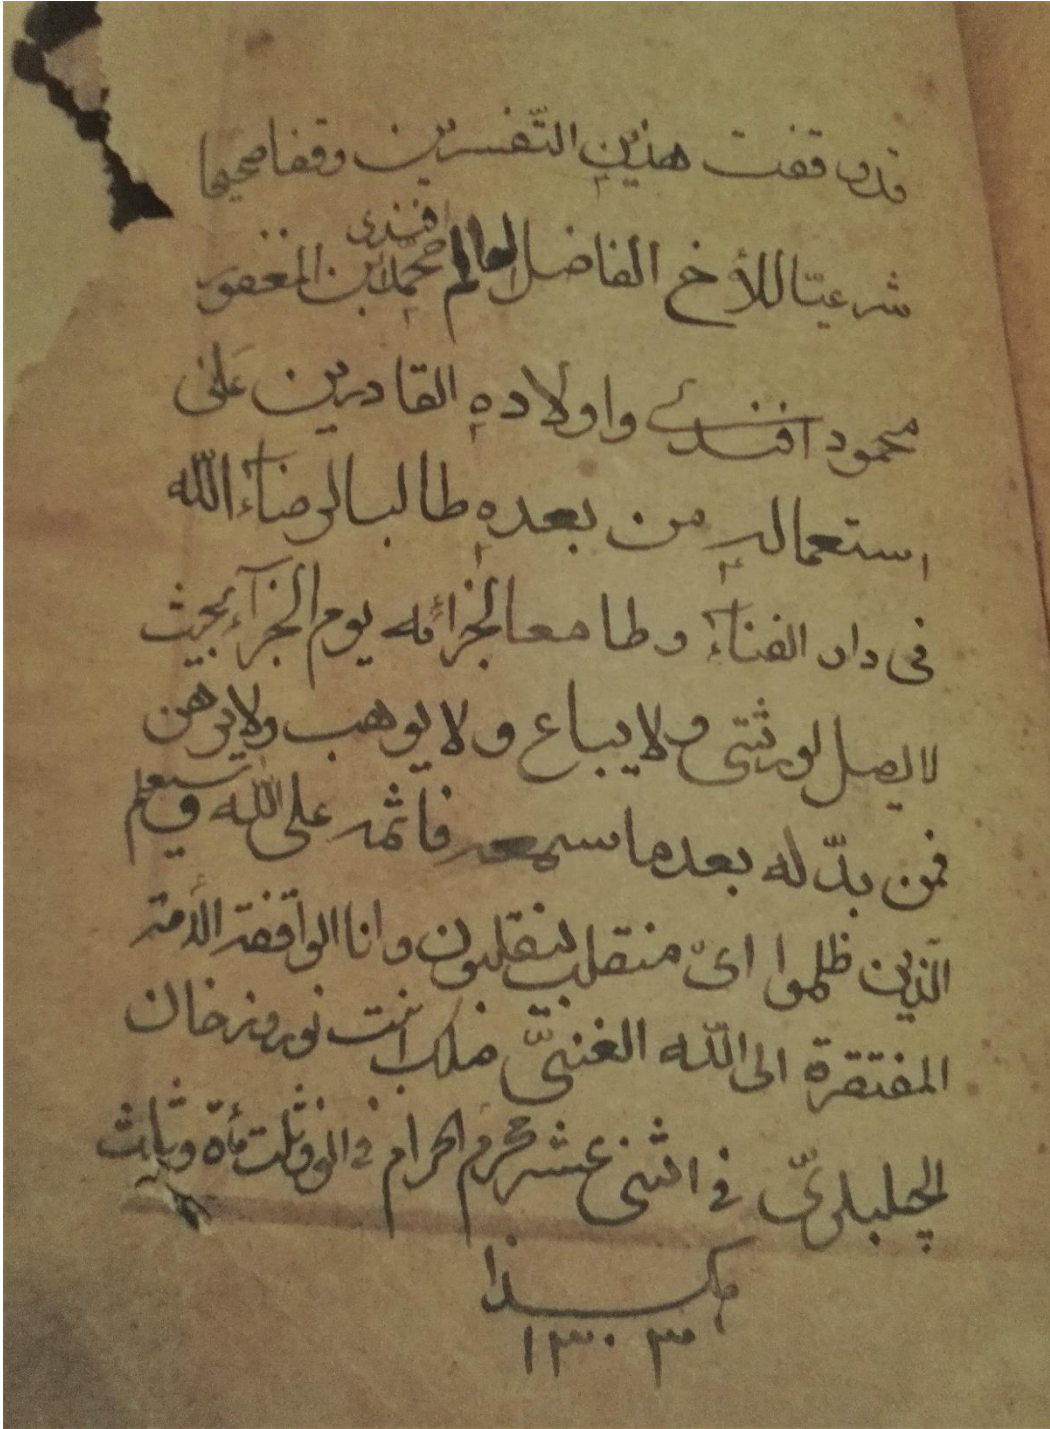 قد وقفت هذين التّفسرين وقفا صحيحا
شرعيّا للأخ الفاضل العالم محمّد افندى ابن المغفور
محمود افندى واولاده القادرين على
استعماله من بعده طالبا لرضاء الله
فى دار الفناء وطامعا لجزائه يوم الجزآء بحيث
لا يصل لورثتى ولا يباع ولا يوهب ولا يرهن
فمن بدّله بعد ما سمعه فاثمه على الله وسيعلم
الّذين ظلموا اىّ منقلب ينقلبون وانا الواقفة الأمة
المفتقرة الى الله الغنىّ ملك بنت نوروز خان
الچلبلرىّ فى اثنى عشر محرم الحرام فى الف وثلث مأة وثلث
هكذا
١٣٠٣